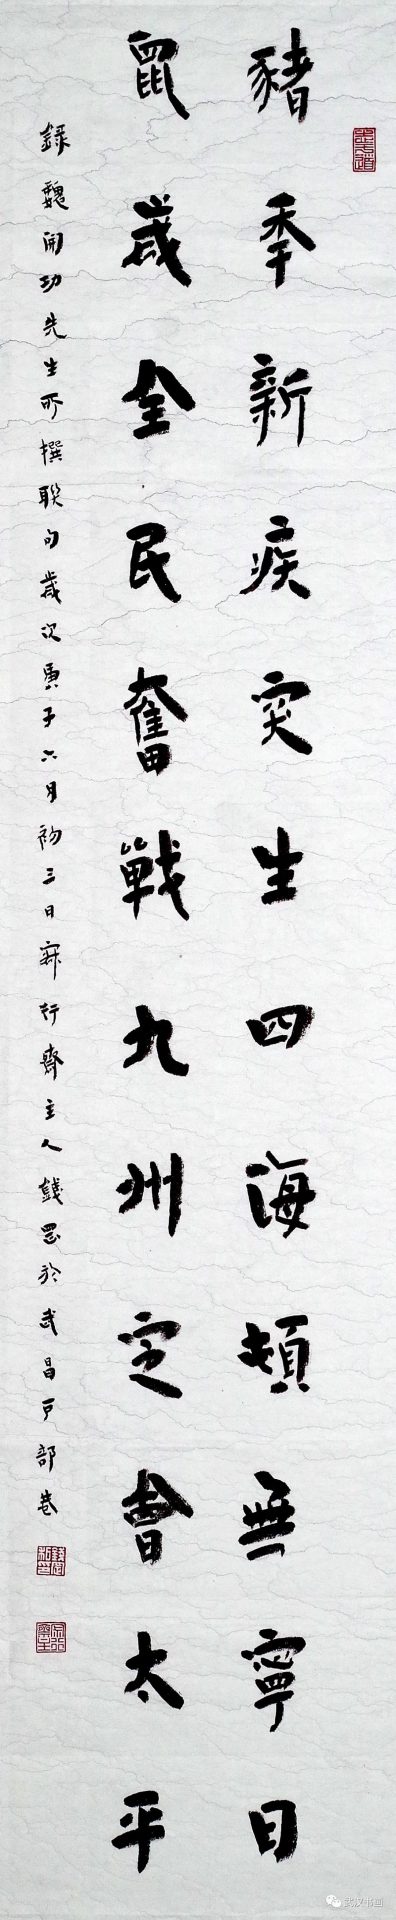 豬秊新疾突生四海頓無寧日
鼠歲全民奮戰九州定會太平
錄魏開功先生所撰聯句歲次庚子六月初三日行齋主人錢於武昌戶部巷
武汉书画